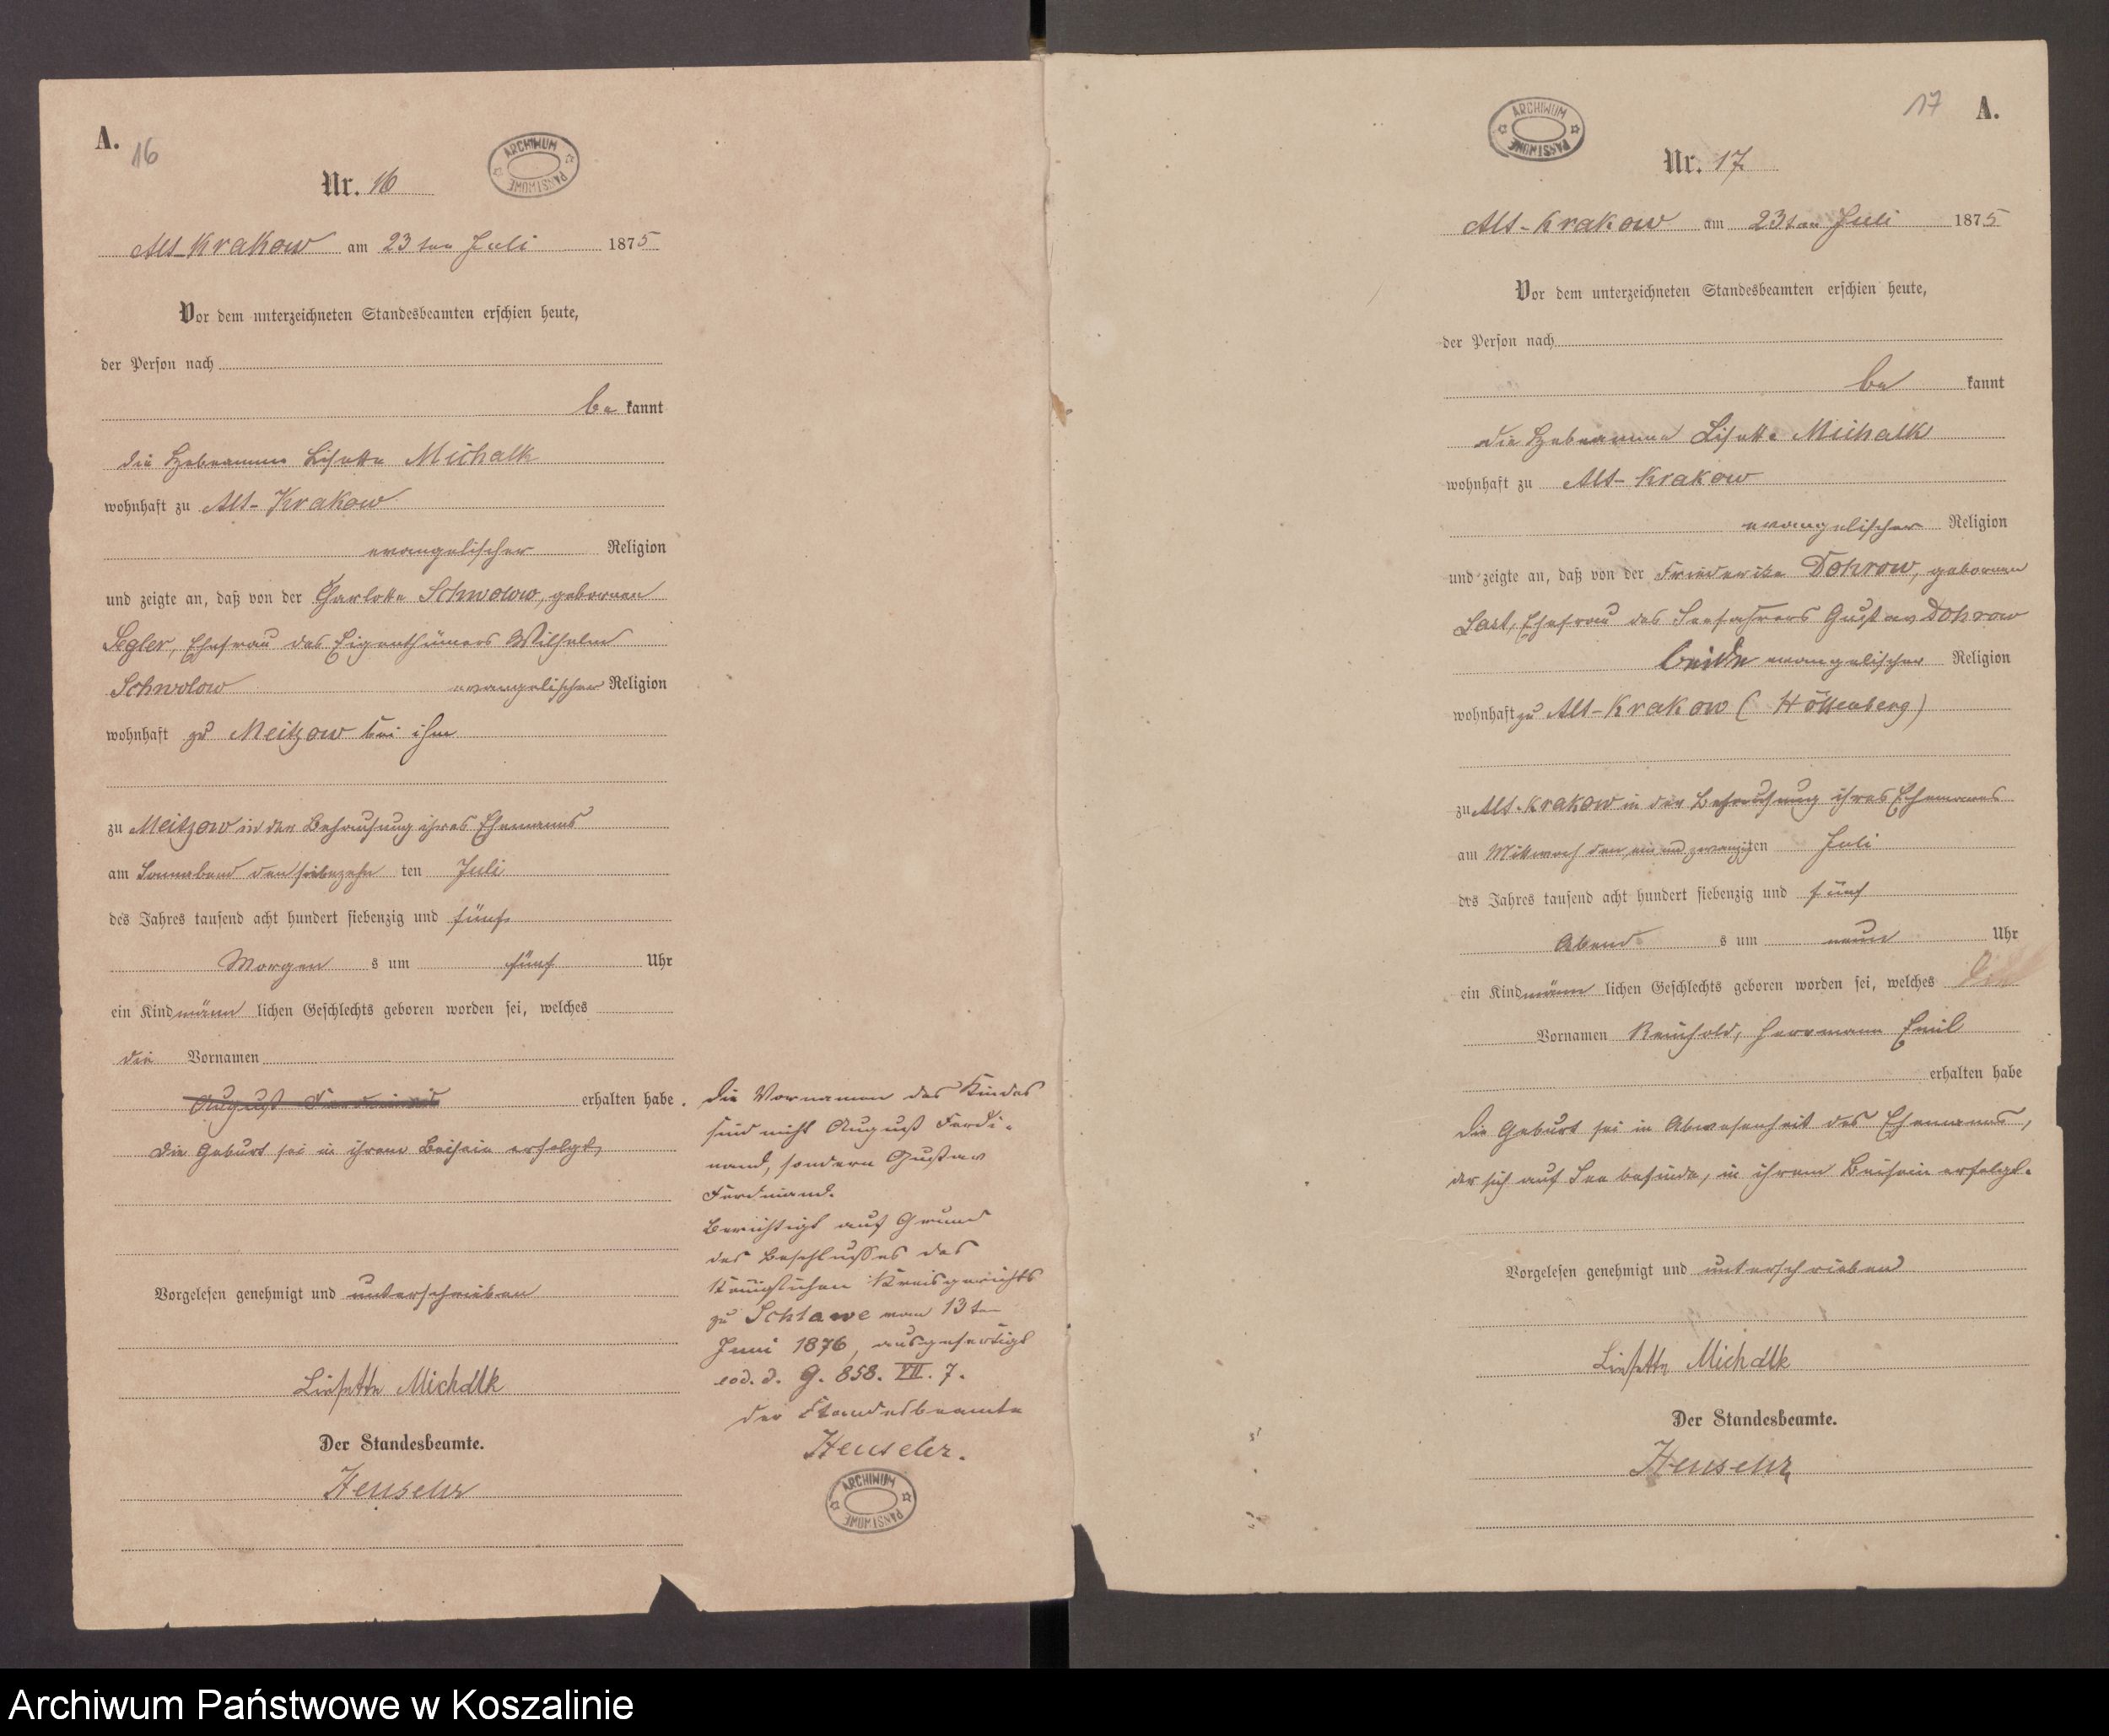 A.
16
Nr. 16
ARCHIWUM PAŃSTWOWE
Alt-Krakow am 23ten Juli 1875
Vor dem unterzeichneten Standesbeamten erschien heute,
der Person nach
be kannt
die Hebeamme Lisette Michalk
wohnhaft zu Alt-Krakow
evangelischer Religion
und zeigte an, daß von der Charlotte Schwolow, geborenen
Segler, Ehefrau des Eigenthümers Wilhelm
Schwolow evangelischer Religion
wohnhaft zu Meitzow bei ihm
zu Meitzow in der Behausung ihres Ehemanns
am Sonnabend den siebzehn ten Juli
des Jahres tausend acht hundert siebenzig und fünf
Morgen s um fünf Uhr
ein Kind männ lichen Geschlechts geboren worden sei, welches
die Vornamen
August Ferdinand erhalten habe.
Die Geburt sei in ihrem Beisein erfolgt,
Vorgelesen genehmigt und unterschrieben
Liesette Michalk
Der Standesbeamte.
Die Vornamen des Kindes
sind nicht August Ferdi-
nand, sondern Gustav
Ferdinand.
Berichtigt auf Grund
des Beschlusses des
Königlichen Kreisgerichts
zu Schlawe vom 13ten
Juni 1876, ausgefertigt
eod. d. G. 858. VII. 7.
Der Standesbeamte
ARCHIWUM PAŃSTWOWE
17
A.
ARCHIWUM PAŃSTWOWE
Nr. 17
Alt-Krakow am 23ten Juli 1875
Vor dem unterzeichneten Standesbeamten erschien heute,
der Person nach
be kannt
die Hebeamme Lisette Michalk
wohnhaft zu Alt-Krakow
evangelischer Religion
und zeigte an, daß von der Friederike Dohrow, geborenen
Last, Ehefrau des Seefahrers Gustav Dohrow
beide evangelischer Religion
wohnhaft zu Alt-Krakow (Höllenberg)
zu Alt-Krakow in der Behausung ihres Ehemannes
am Mittwoch den ein und zwanzigten Juli
des Jahres tausend acht hundert siebenzig und fünf
Abend s um neun Uhr
ein Kind männ lichen Geschlechts geboren worden sei, welches die
Vornamen Reinhold, Herrmann Emil
erhalten habe
Die Geburt sei in Abwesenheit des Ehemanns,
der sich auf See befinde, in ihrem Beisein erfolgt.
Vorgelesen genehmigt und unterschrieben
Liesette Michalk
Der Standesbeamte.
Archiwum Państwowe w Koszalinie